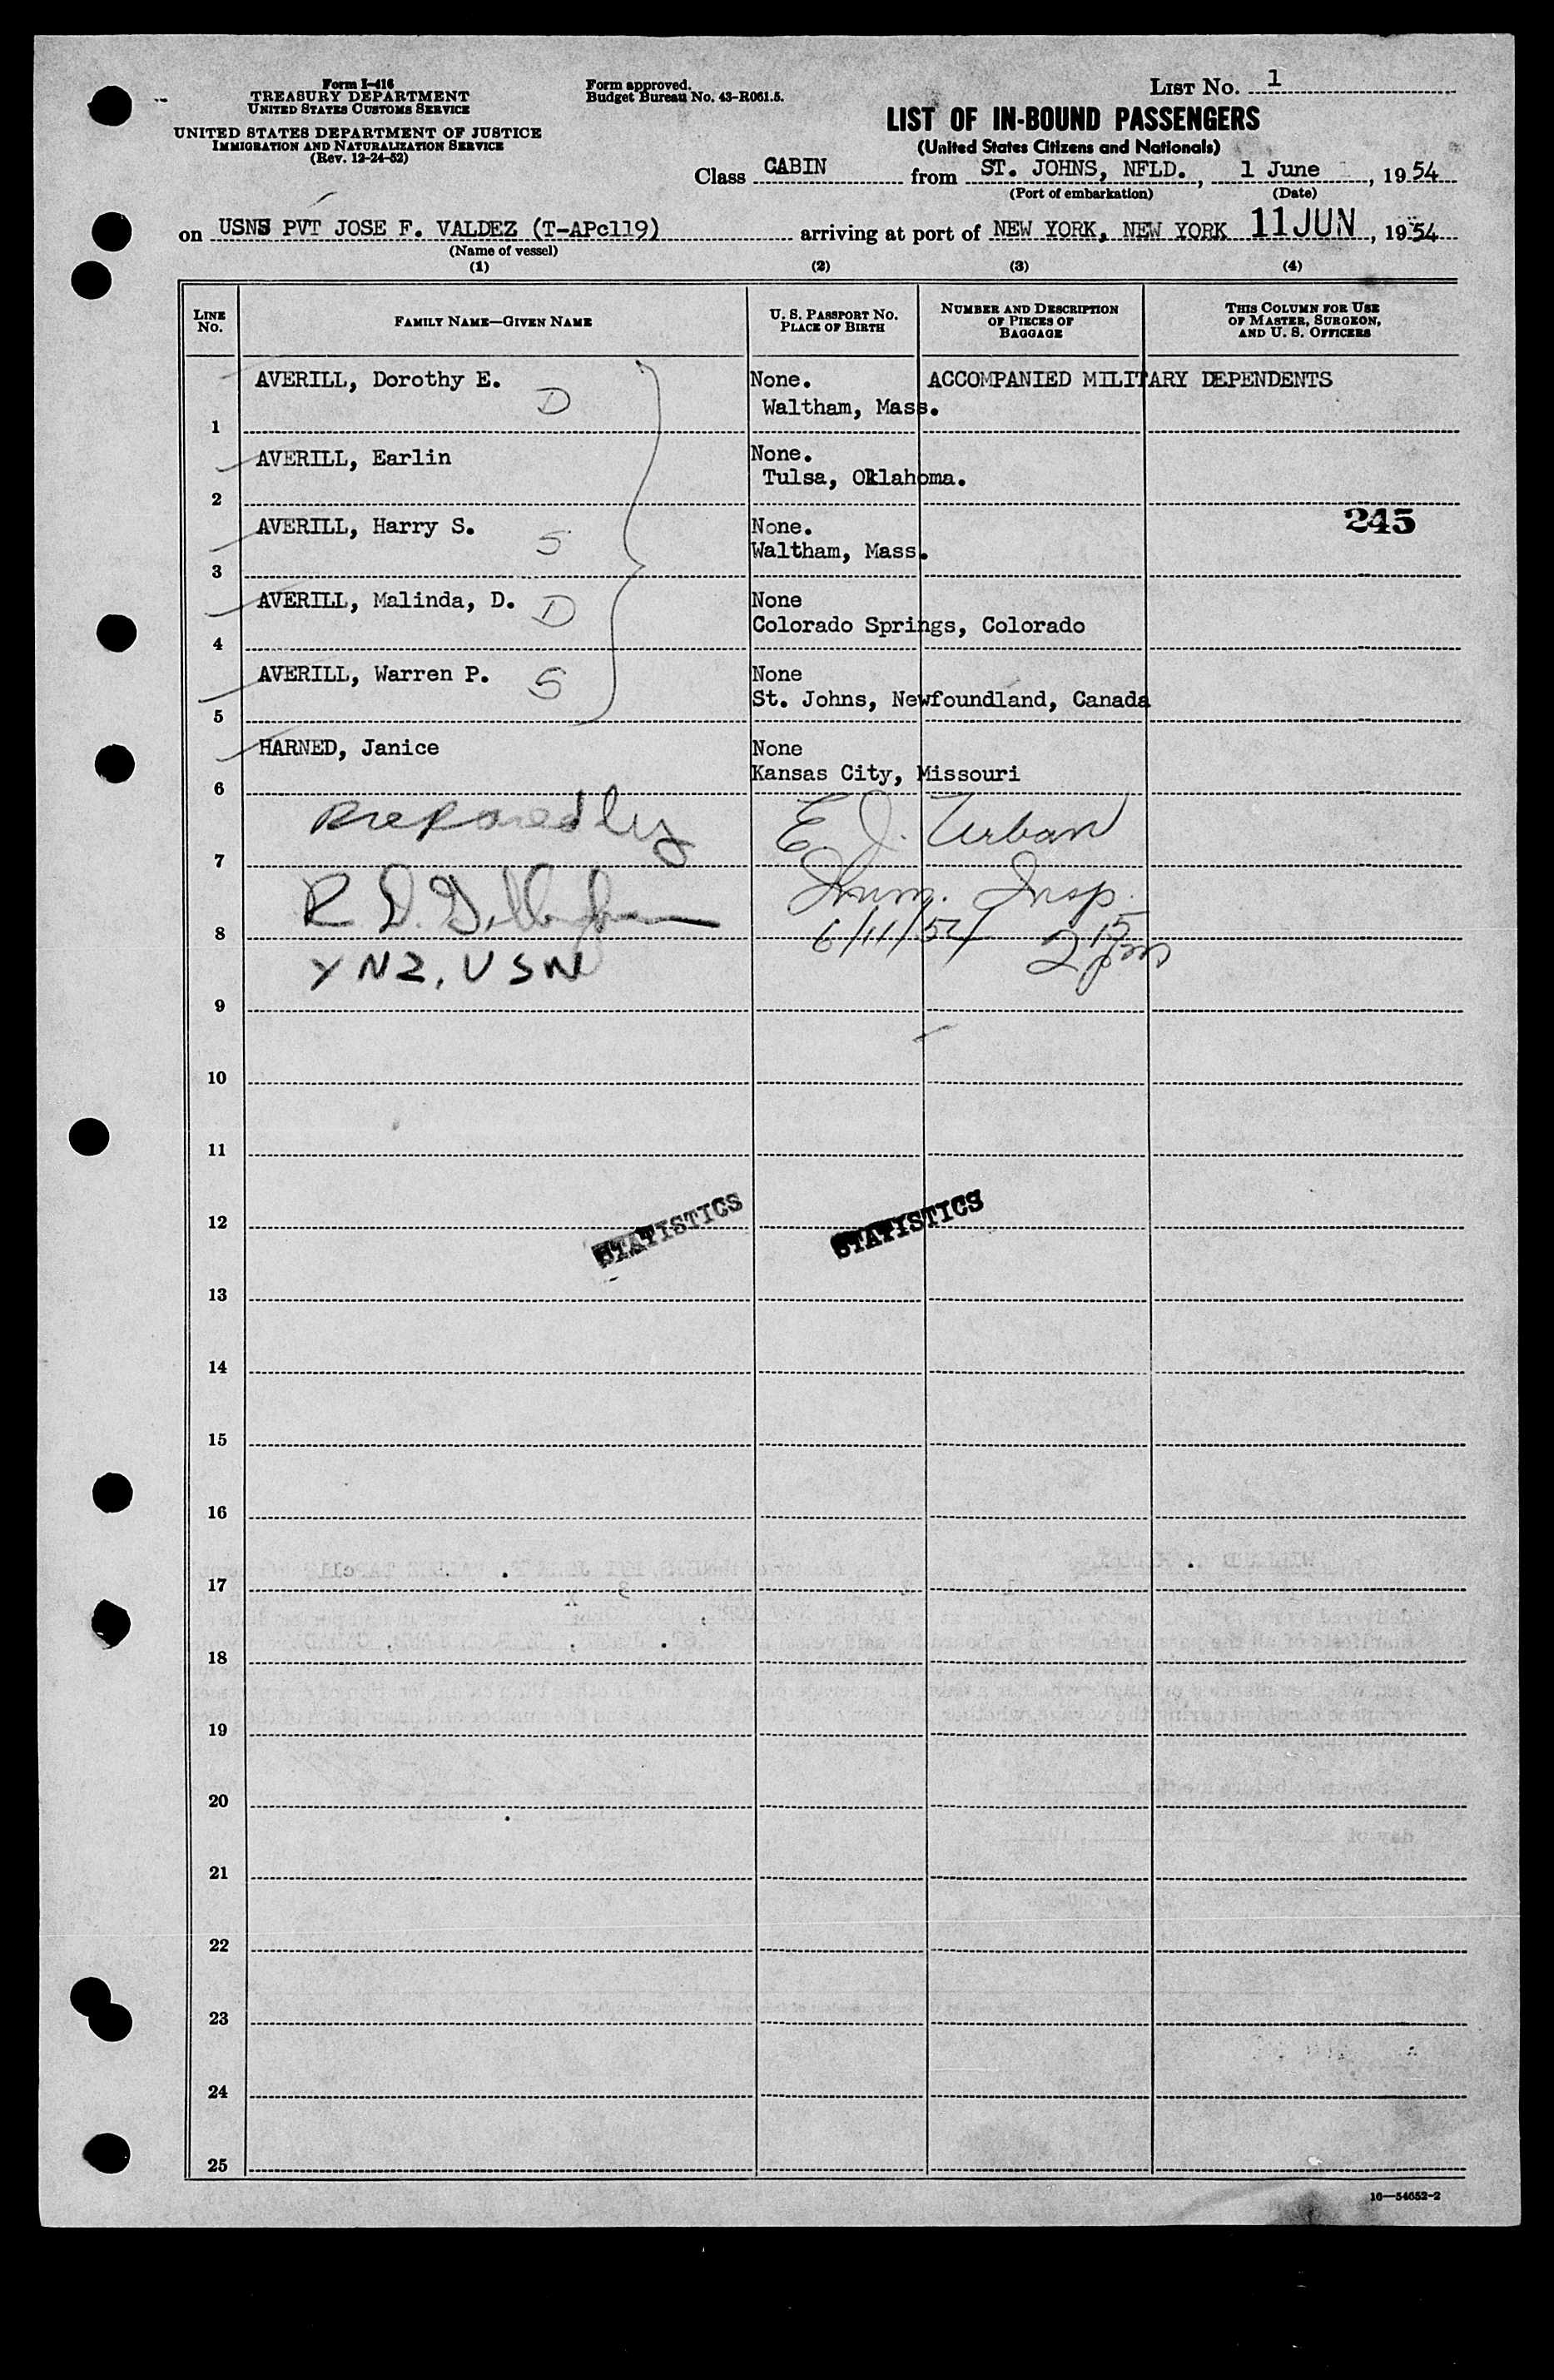 Form I-416
TREASURY DEPARTMENT
UNITED STATES CUSTOMS SERVICE
UNITED STATES DEPARTMENT OF JUSTICE
IMMIGRATION AND NATURALIZATION SERVICE
(Rev. 12-24-52)
Form approved.
Budget Bureau No. 43-R061.5.
LIST NO. 1
LIST OF IN-BOUND PASSENGERS
(United States Citizens and Nationals)
Class CABIN from ST. JOHNS, NFLD., 1 June, 1954
(Port of embarkation) (Date)
on USNS PVT JOSE F. VALDEZ (T-APc119) arriving at port of NEW YORK, NEW YORK 11 JUN, 1954
(Name of vessel)
(1) (2) (3) (4)
LINE NO. FAMILY NAME—GIVEN NAME U. S. PASSPORT NO. PLACE OF BIRTH NUMBER AND DESCRIPTION OF PIECES OF BAGGAGE THIS COLUMN FOR USE OF MASTER, SURGEON, AND U. S. OFFICERS
AVERILL, Dorothy E. D None. ACCOMPANIED MILITARY DEPENDENTS
1 Waltham, Mass.
AVERILL, Earlin None.
2 Tulsa, Oklahoma.
AVERILL, Harry S. S None. 245
3 Waltham, Mass.
AVERILL, Malinda, D. D None
4 Colorado Springs, Colorado
AVERILL, Warren P. S None
5 St. Johns, Newfoundland, Canada
HARNED, Janice None
6 Kansas City, Missouri
Prepared by E J. Urban
7
R D. Imm. Insp.
8 6/11/54 2 15 pm
YN2, USN
9
10
11
12 STATISTICS STATISTICS
13
14
15
16
17
18
19
20
21
22
23
24
25
16—54652-2